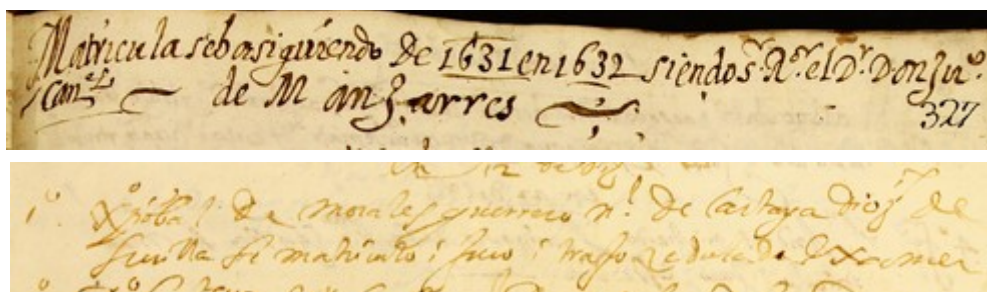 Matricula se ba siguiendo de 1631 en 1632 siendo Sr. Rr. el Dr. Don Juo.
Canes. de Manzarres
327
en 12 de
1o. Xpobal De morales guerrero nl. De Cartaya Dioz de
Sevilla se matriculo i juro i trajo zedula de examen